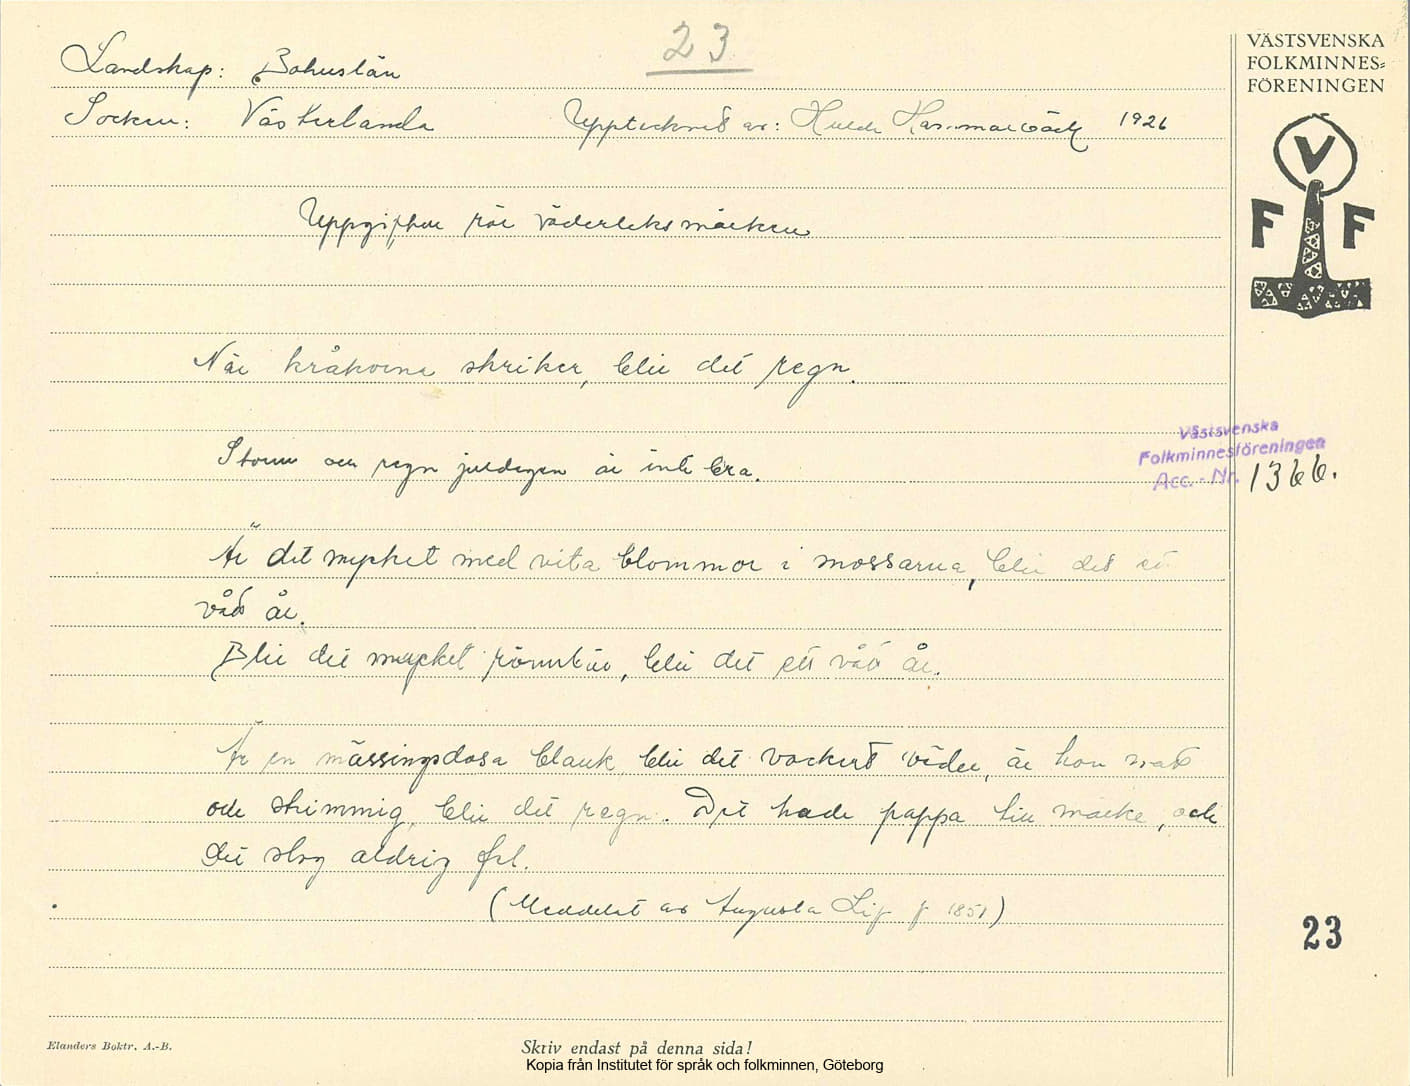 23
VÄSTSVENSKA
FOLKMINNES=
FÖRENINGEN
V
F F
Landskap: Bohuslän
Socken: Västerlanda Upptecknat av: Hulda Hammarbäck 1926
Uppgiften rör väderleksmärken
När kråkorna skriker, blir det regn.
Storm och regn juldagen är inte bra.
Är det mycket med vita blommor i mossarna, blir det ett
vått år.
Blir det mycket rönnbär, blir det ett vått år.
Är en mässingsdosa blank, blir det vackert väder, är hon matt
och skimmig, blir det regn. Det hade pappa till märke, och
det slog aldrig fel.
(Meddelat av Augusta f 1851)
Västsvenska
Folkminnesföreningen
Acc. - Nr. 1366.
23
Elanders Boktr. A.-B.
Skriv endast på denna sida!
Kopia från Institutet för språk och folkminnen, Göteborg